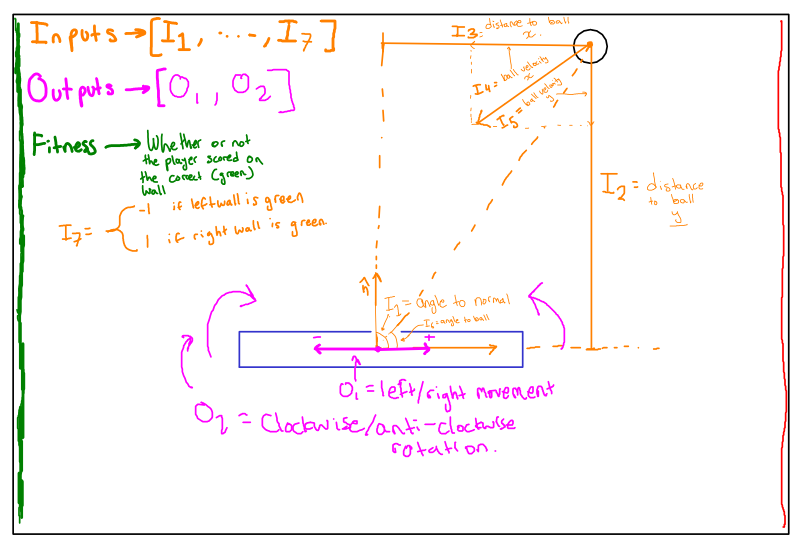 Inputs → [I₁, ...., I₇]
Outputs → [O₁, O₂]
Fitness → Whether or not
the player scored on
the correct (green)
wall
I₇ = { -1 if left wall is green
1 if right wall is green.
I₃ = distance to ball
x.
I₄ = ball velocity
x
I₅ = ball velocity
y
I₂ = distance
to ball
y
n̂
I₁ = angle to normal
I₆ = angle to ball
- +
O₁ = left/right movement
O₂ = Clockwise/anti-clockwise
rotation.